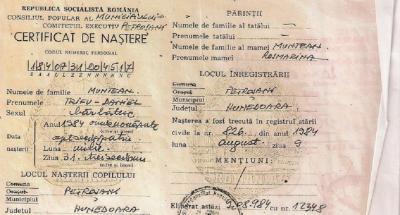 REPUBLICA SOCIALISTA ROMÂNIA
CONSILIUL POPULAR AL MUNICIPIULUI
COMITETUL EXECUTIV PETROȘANI
CERTIFICAT DE NAȘTERE
CODUL NUMERIC PERSONAL
S A A L L Z Z N N N N C
Numele de familie MUNTEAN
Prenumele TRAIAN-DANIEL
Sexul bărbătesc
Anul 1984
Data nașterii
Luna iulie
Ziua 31
LOCUL NAȘTERII COPILULUI
Comuna
Orașul PETROȘANI
Municipiul
Județul HUNEDOARA
PĂRINȚII
Numele de familie al tatălui —
Prenumele tatălui —
Numele de familie al mamei MUNTEAN
Prenumele mamei ROZMARINA
LOCUL ÎNREGISTRĂRII
Comuna
Orașul PETROȘANI
Municipiul
Județul HUNEDOARA
Nașterea a fost trecută în registrul stării
civile la nr. 826 din anul 1984
luna august ziua 9
MENȚIUNI:
Eliberat astăzi 08.984 cu nr. 12348